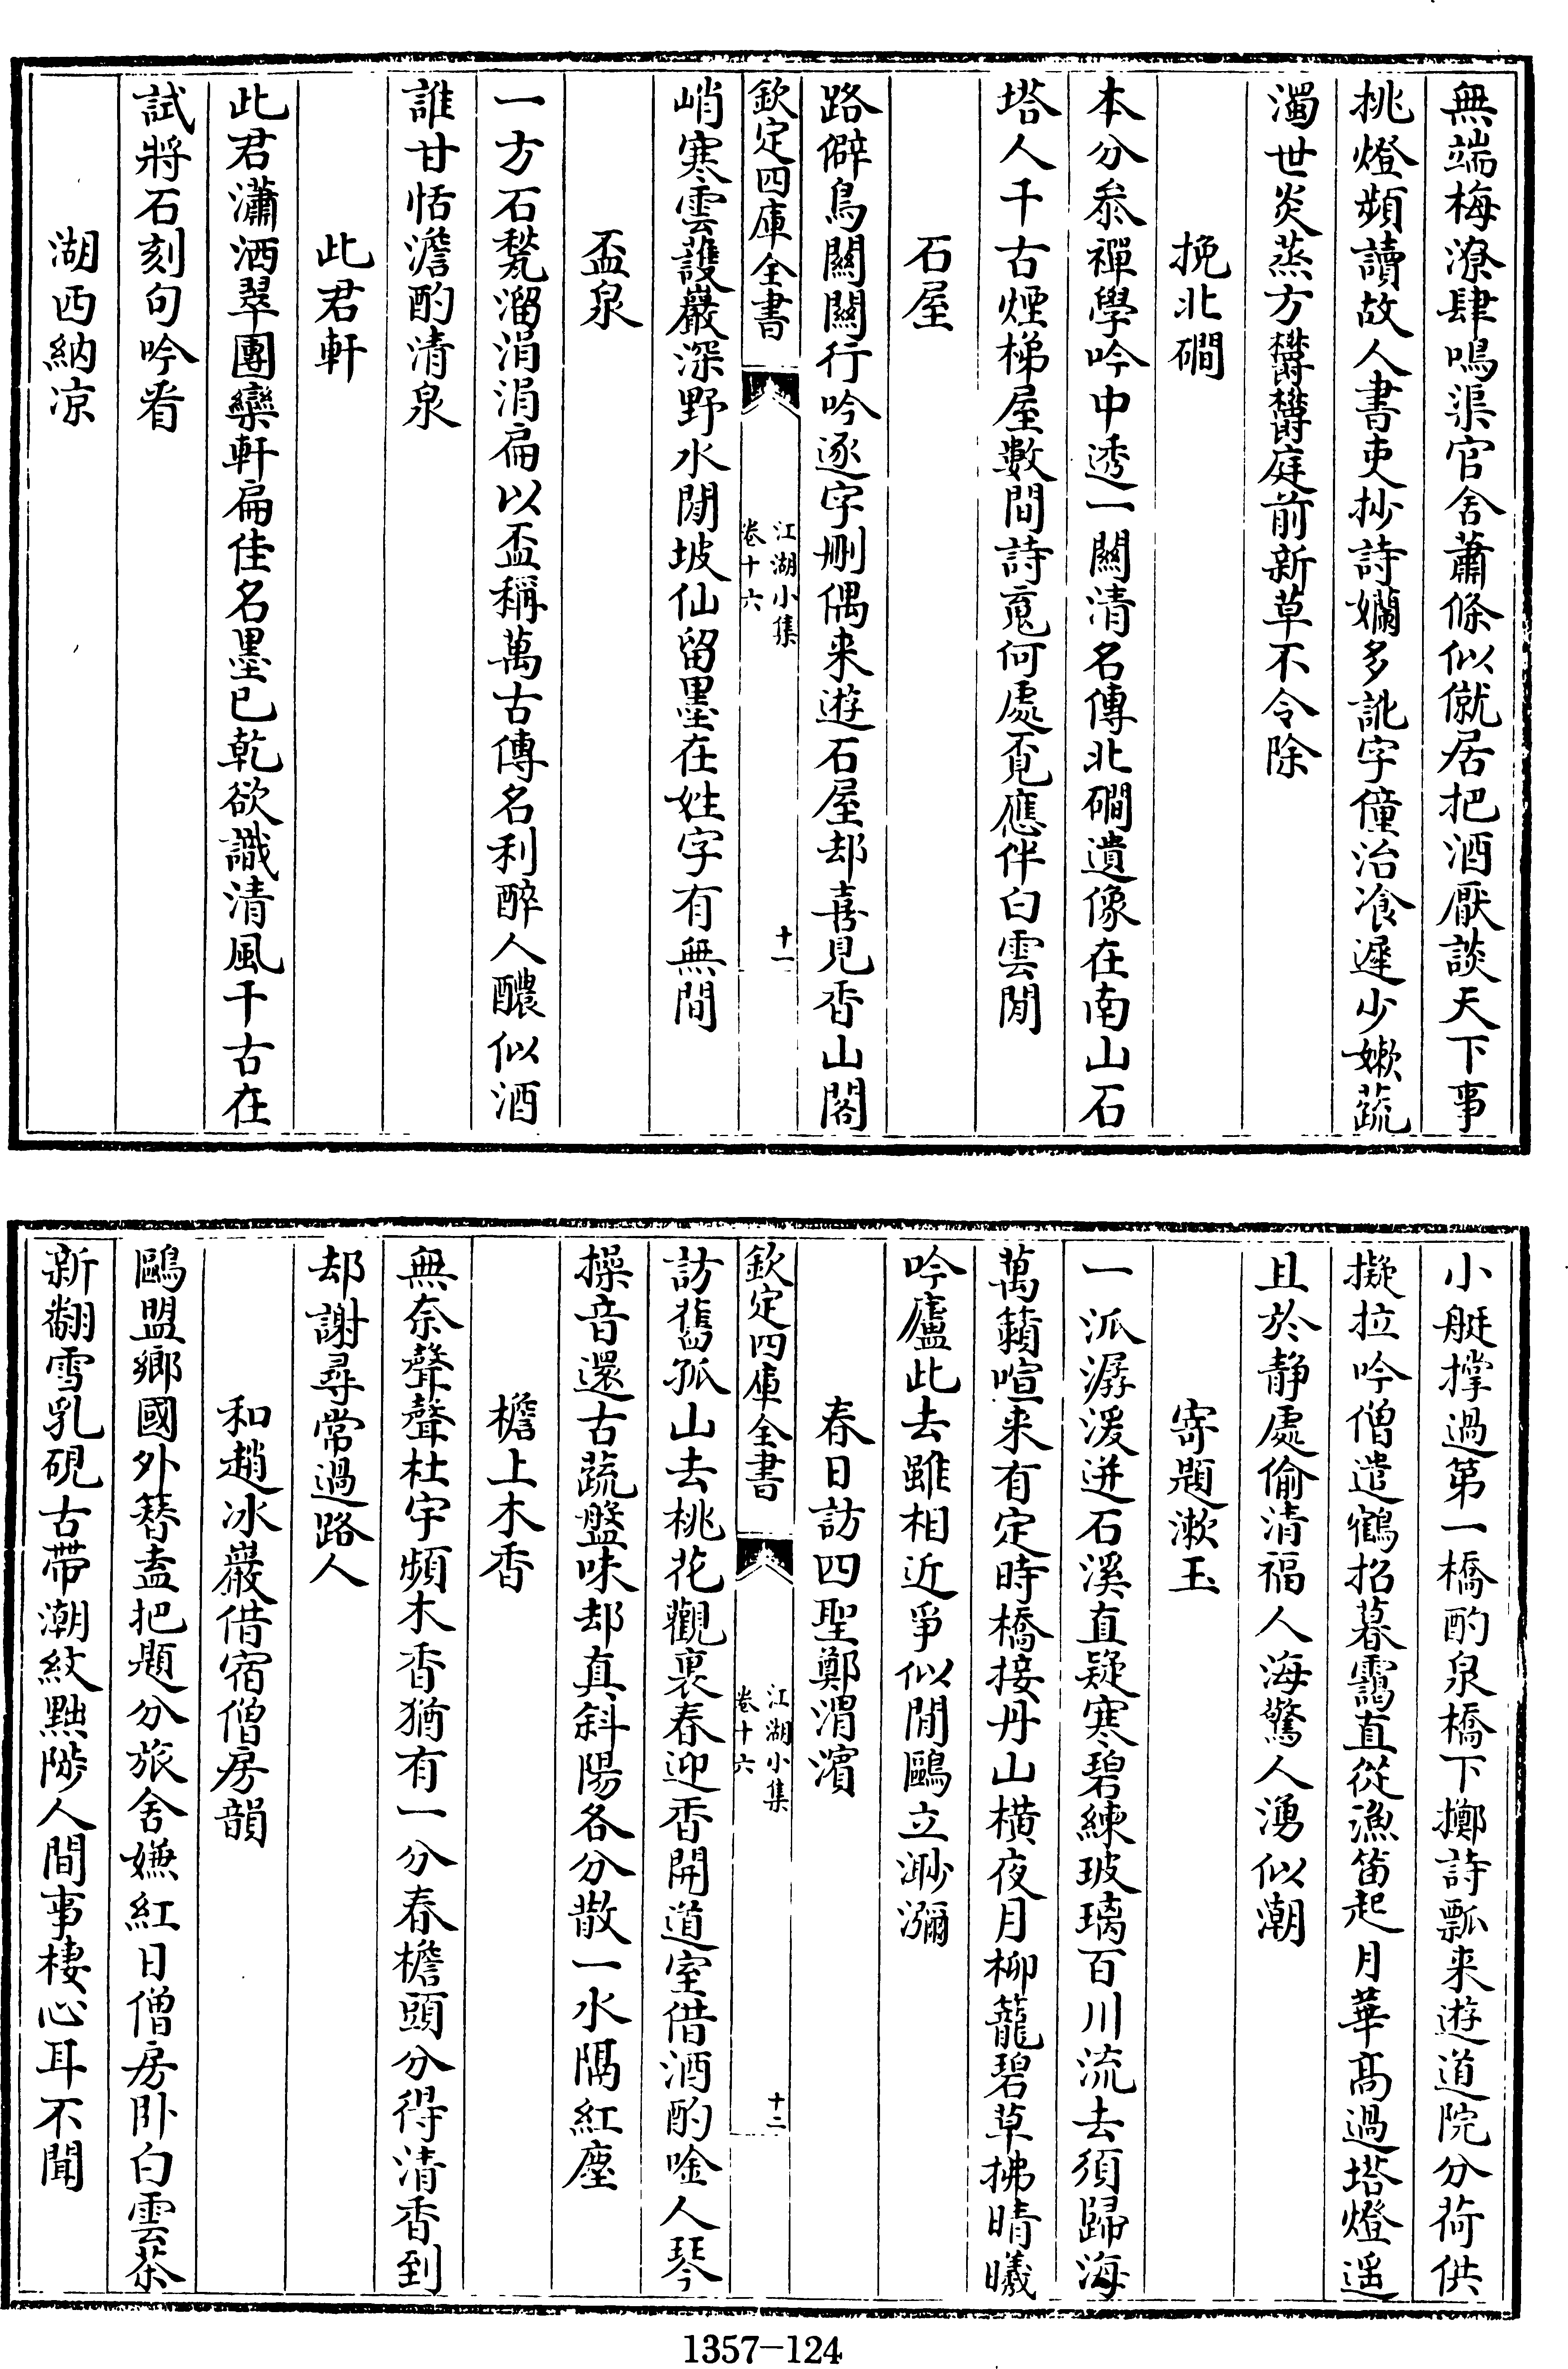 無端梅潦肆鳴渠官舍蕭條似僦居把酒厭談天下事
挑燈頻讀故人書吏抄詩嬾多訛字僮治飡遲少嫰蔬
濁世炎蒸方欝欝庭前新草不令除
挽北磵
本分叅禪學吟中透一關清名傳北磵遺像在南山石
塔人千古煙梯屋數間詩䰟何處覔應伴白雲閒
石屋
路僻鳥關關行吟逐字刪偶来遊石屋却喜見香山閣
欽定四庫全書
江湖小集
卷十六
十一
峭寒雲護巖深野水閒坡仙留墨在姓字有無間
盃泉
一方石甃溜涓涓扁以盃稱萬古傳名利醉人醲似酒
誰甘恬澹酌清泉
此君軒
此君瀟洒翠團欒軒扁佳名墨已乾欲識清風千古在
試將石刻句吟看
湖西納凉
小艇撑過第一橋酌泉橋下擲詩瓢来遊道院分荷供
擬拉吟僧遣鶴招暮靄直從漁笛起月華髙過塔燈遥
且於静處偷清福人海驚人湧似潮
寄題漱玉
一派潺湲迸石溪直疑寒碧練玻璃百川流去須歸海
萬籟喧来有定時橋接丹山横夜月柳籠碧草拂晴曦
吟廬此去雖相近爭似閒鷗立渺瀰
春日訪四聖鄭渭濵
欽定四庫全書
江湖小集
卷十六
十二
訪舊孤山去桃花觀裏春迎香開道室借酒酌唫人琴
操音還古蔬盤味却真斜陽各分散一水隔紅塵
檐上木香
無奈聲聲杜宇頻木香猶有一分春檐頭分得清香到
却謝尋常過路人
和趙冰巖借宿僧房韻
鷗盟鄉國外簪盍把題分旅舍嫌紅日僧房卧白雲茶
新翻雪乳硯古帶潮紋㸃陟人間事棲心耳不聞
1357-124